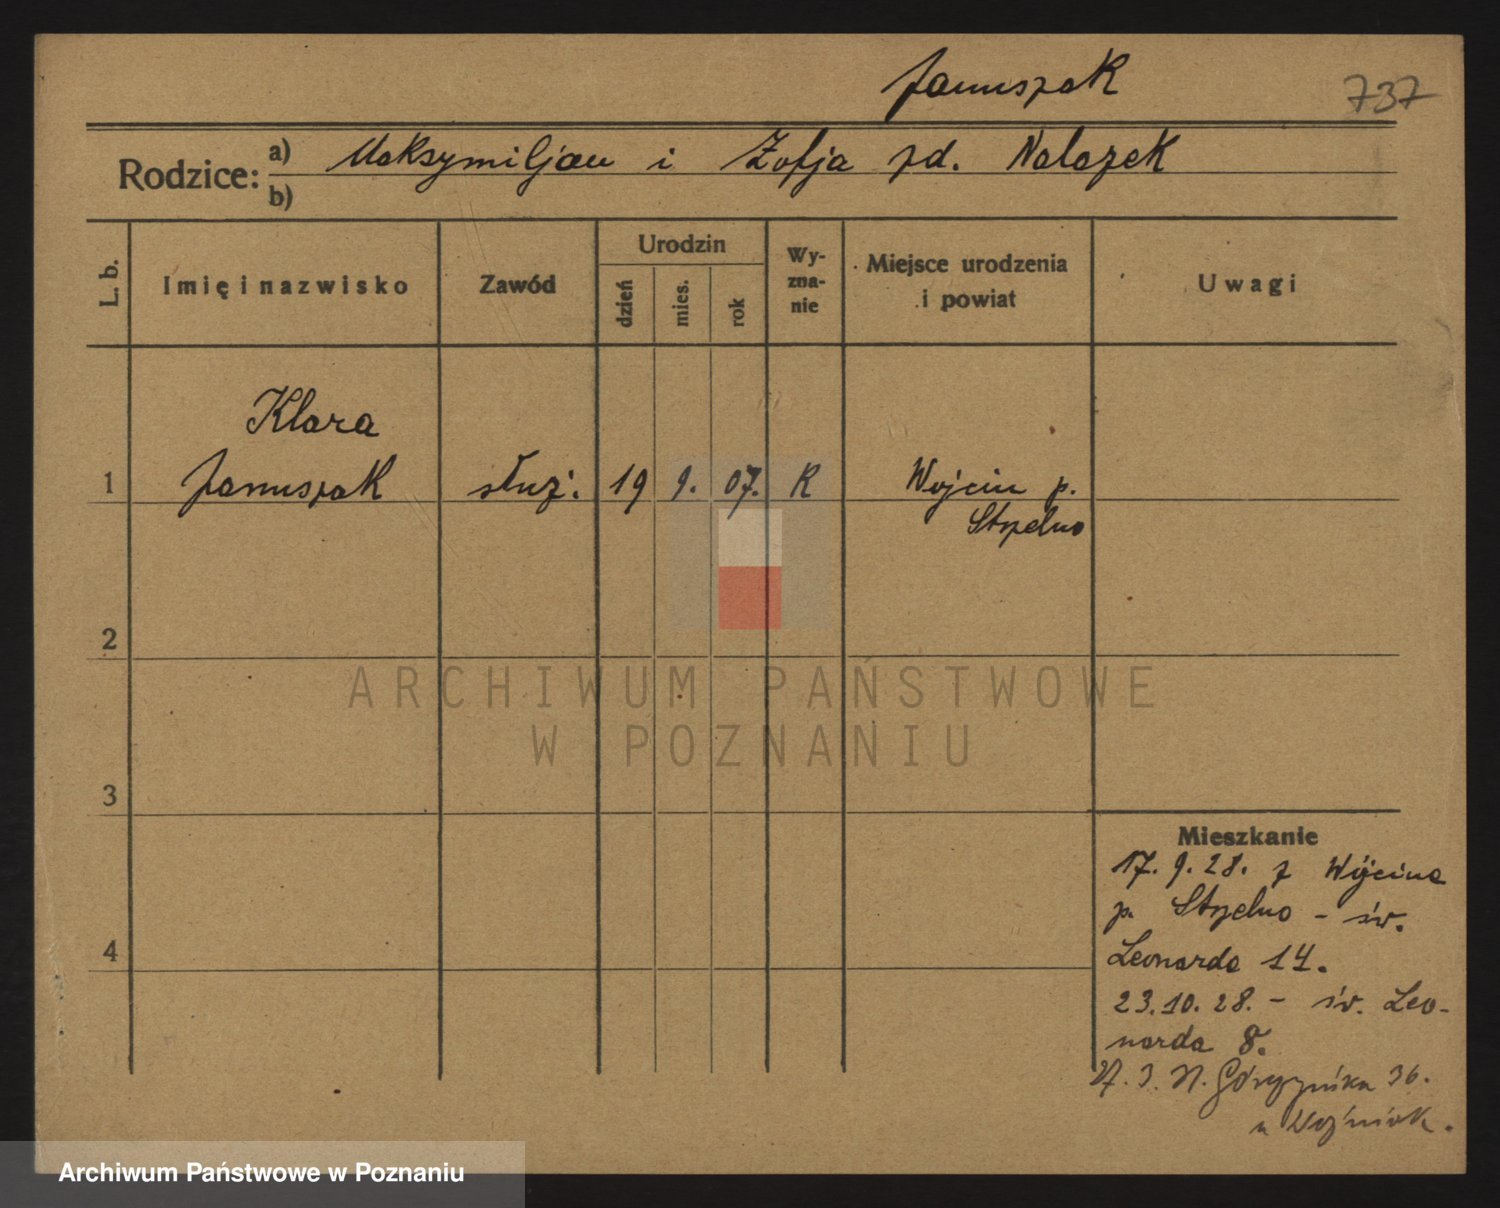 Januszak
737
Rodzice: a) Maksymiljan i Zofja zd. Nalazek
b)
L. b.
Imię i nazwisko
Zawód
Urodzin
dzień
mies.
rok
Wy-
zna-
nie
Miejsce urodzenia
i powiat
Uwagi
Klara
1 Januszak służ. 19 9. 07. R Wojcin p.
Strzelno
2
ARCHIWUM PAŃSTWOWE
W POZNANIU
3
Mieszkanie
17. 9. 28. z Wójcina
p. Strzelno - św.
4
Leonarda 14.
23.10.28. - św. Leo-
narda 8.
Górczyńska 36.
u Woźniak.
Archiwum Państwowe w Poznaniu